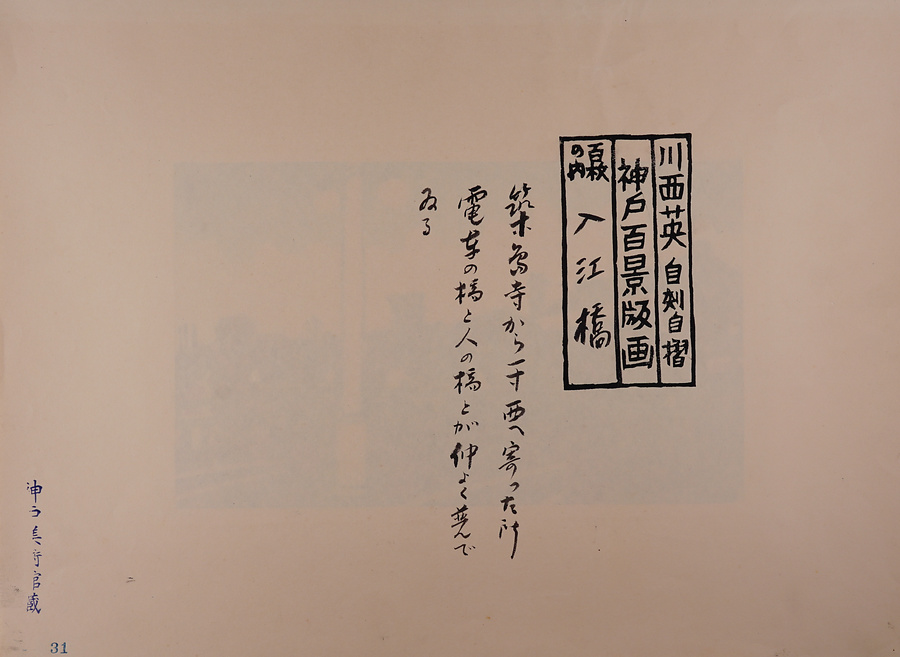 川西英 自刻自摺
神戸百景版画
百枚の内 入江橋
築島寺から一寸西へ寄った所
電車の橋と人の橋とが仲よく並んで
ゐる
31